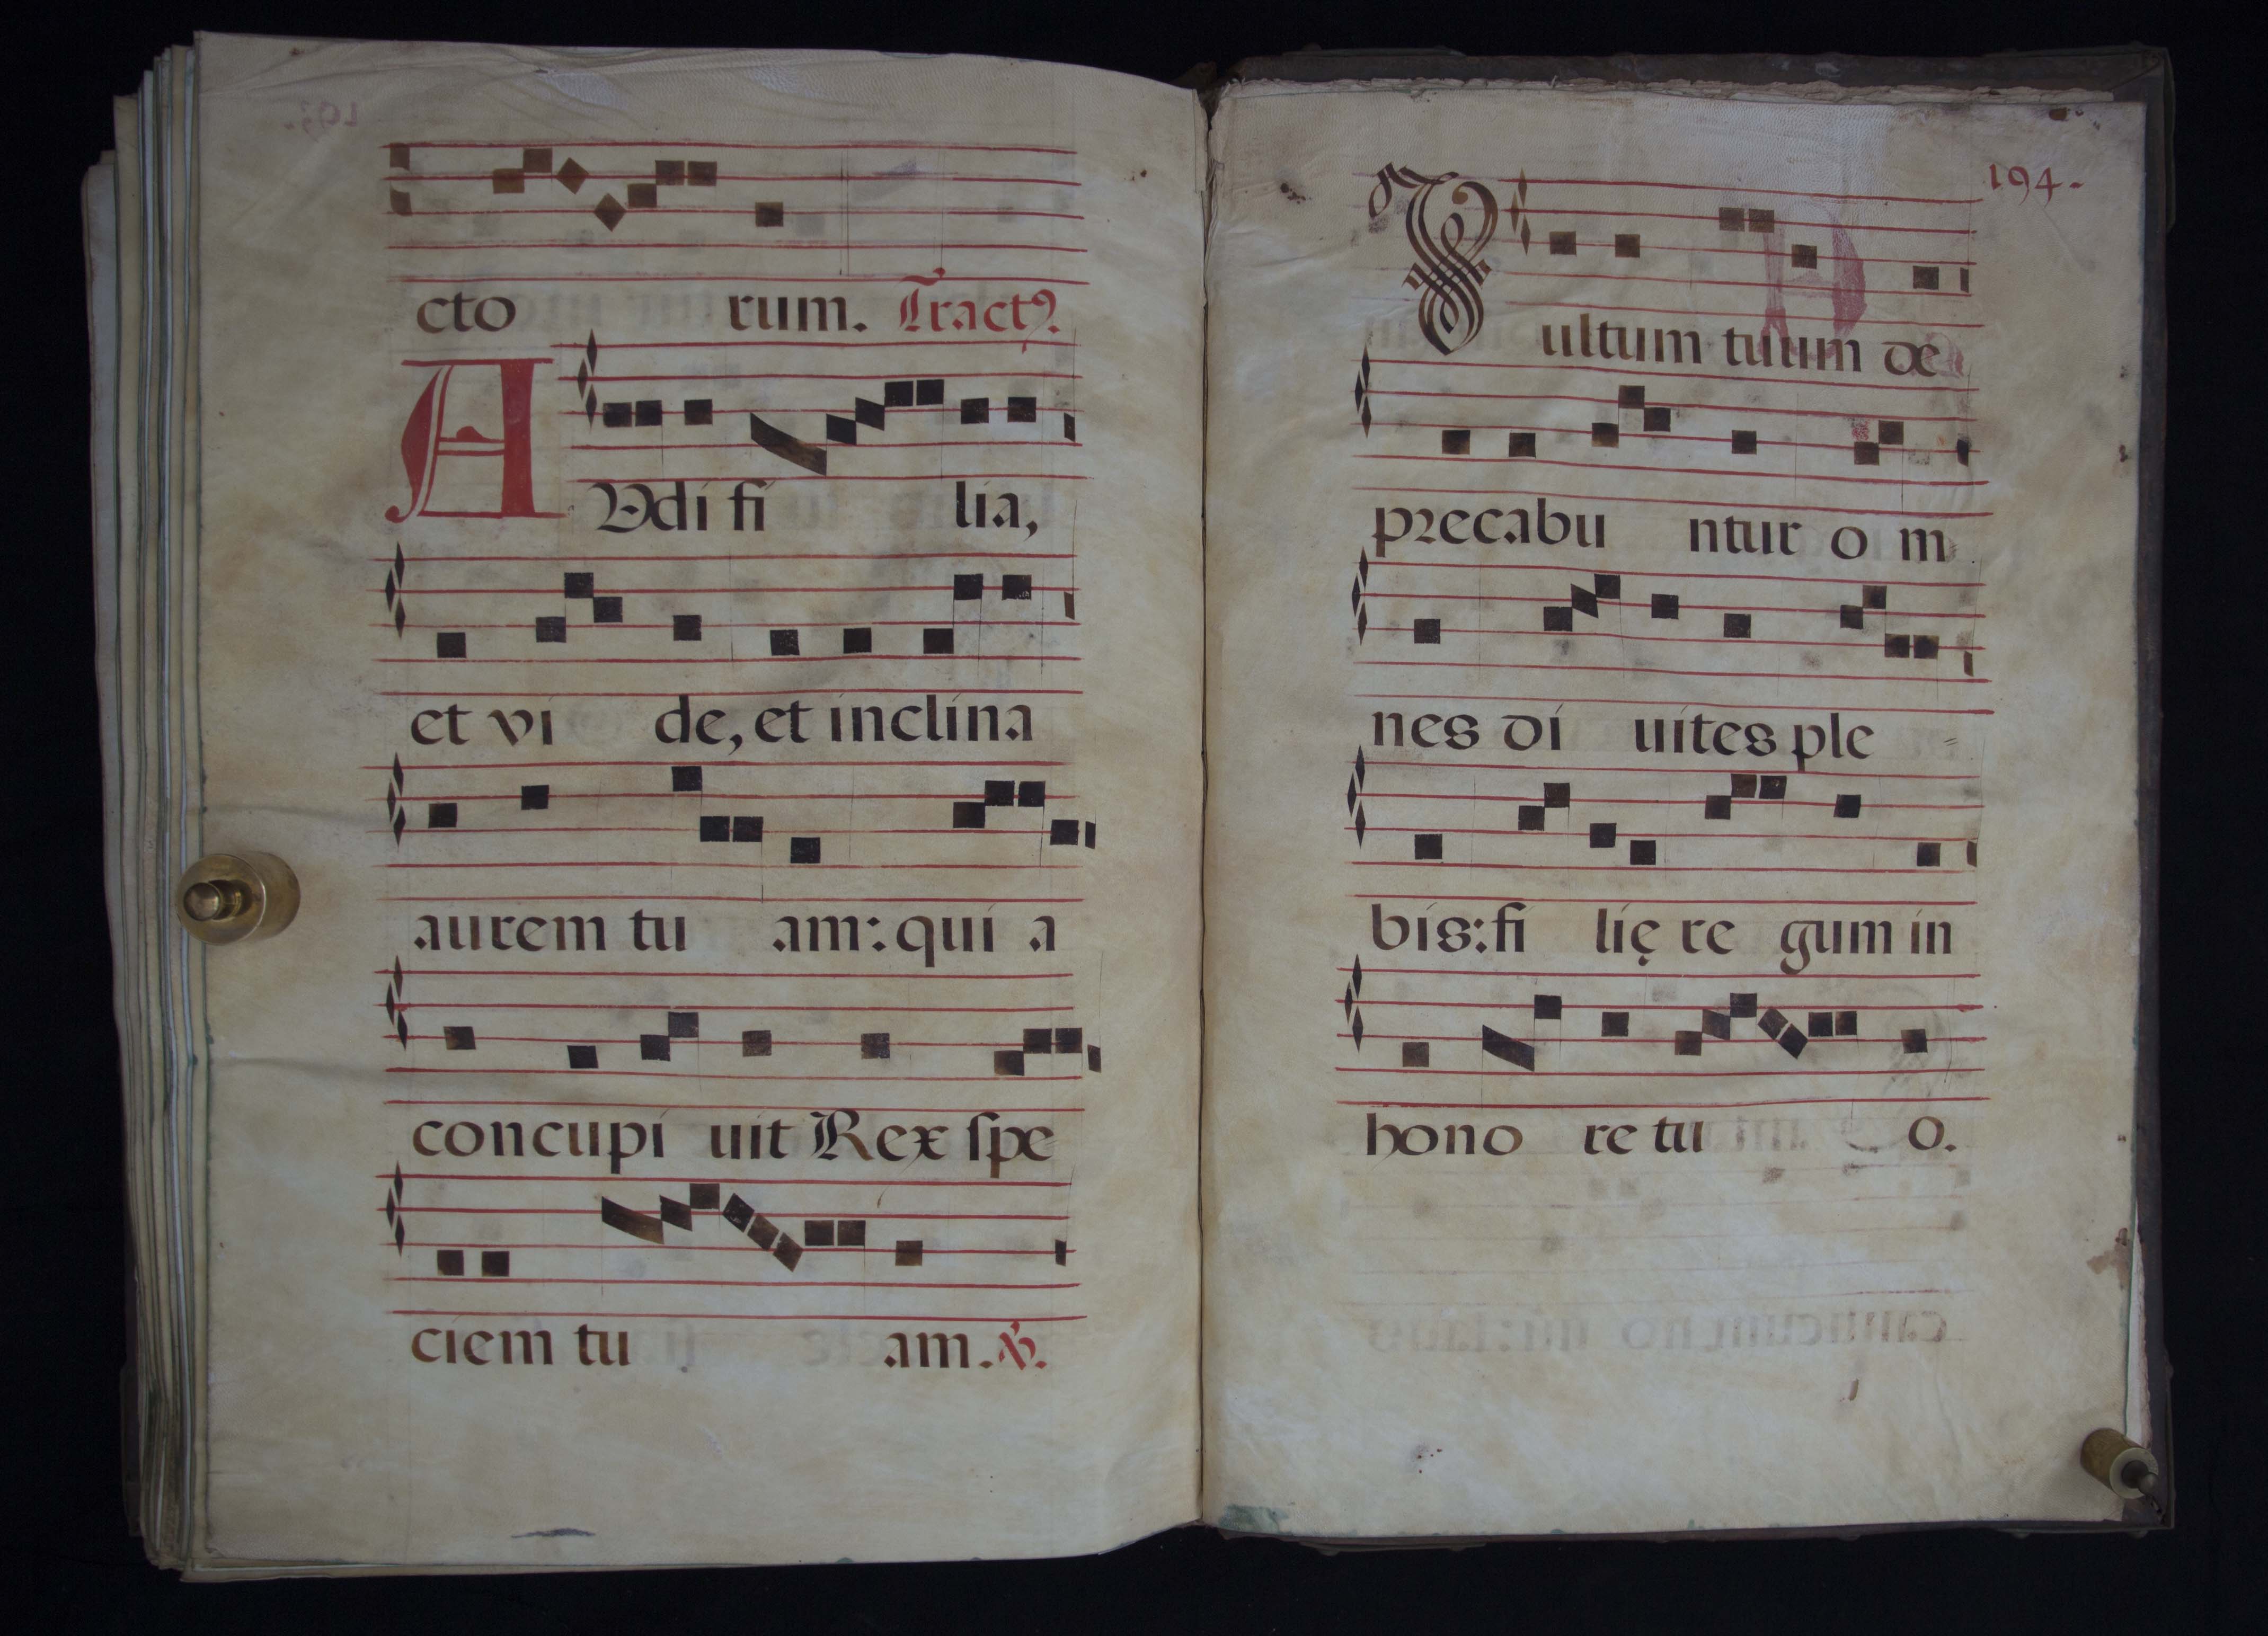 cto rum. Tractꝰ.
AVdi fi lia,
et vi de, et inclina
aurem tu am: qui a
concupi uit Rex ſpe
ciem tu am. ℣.
194.
Vultum tuum de
precabu ntur o m
nes di uites ple
bis: fi lię re gum in
hono re tu o.